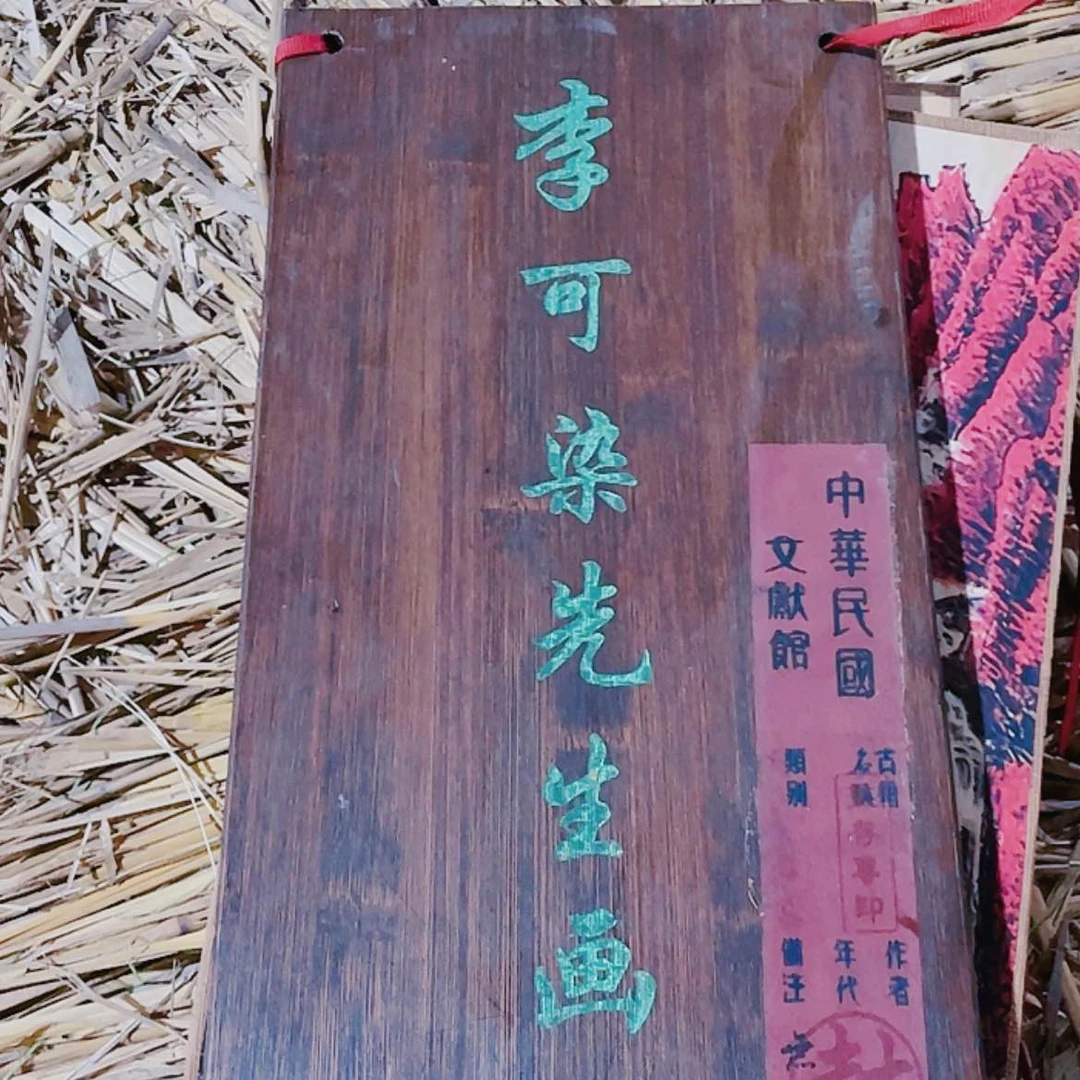 李可染先生画
中華民國
文獻館
古籍
名
類别
作者
年代
備注